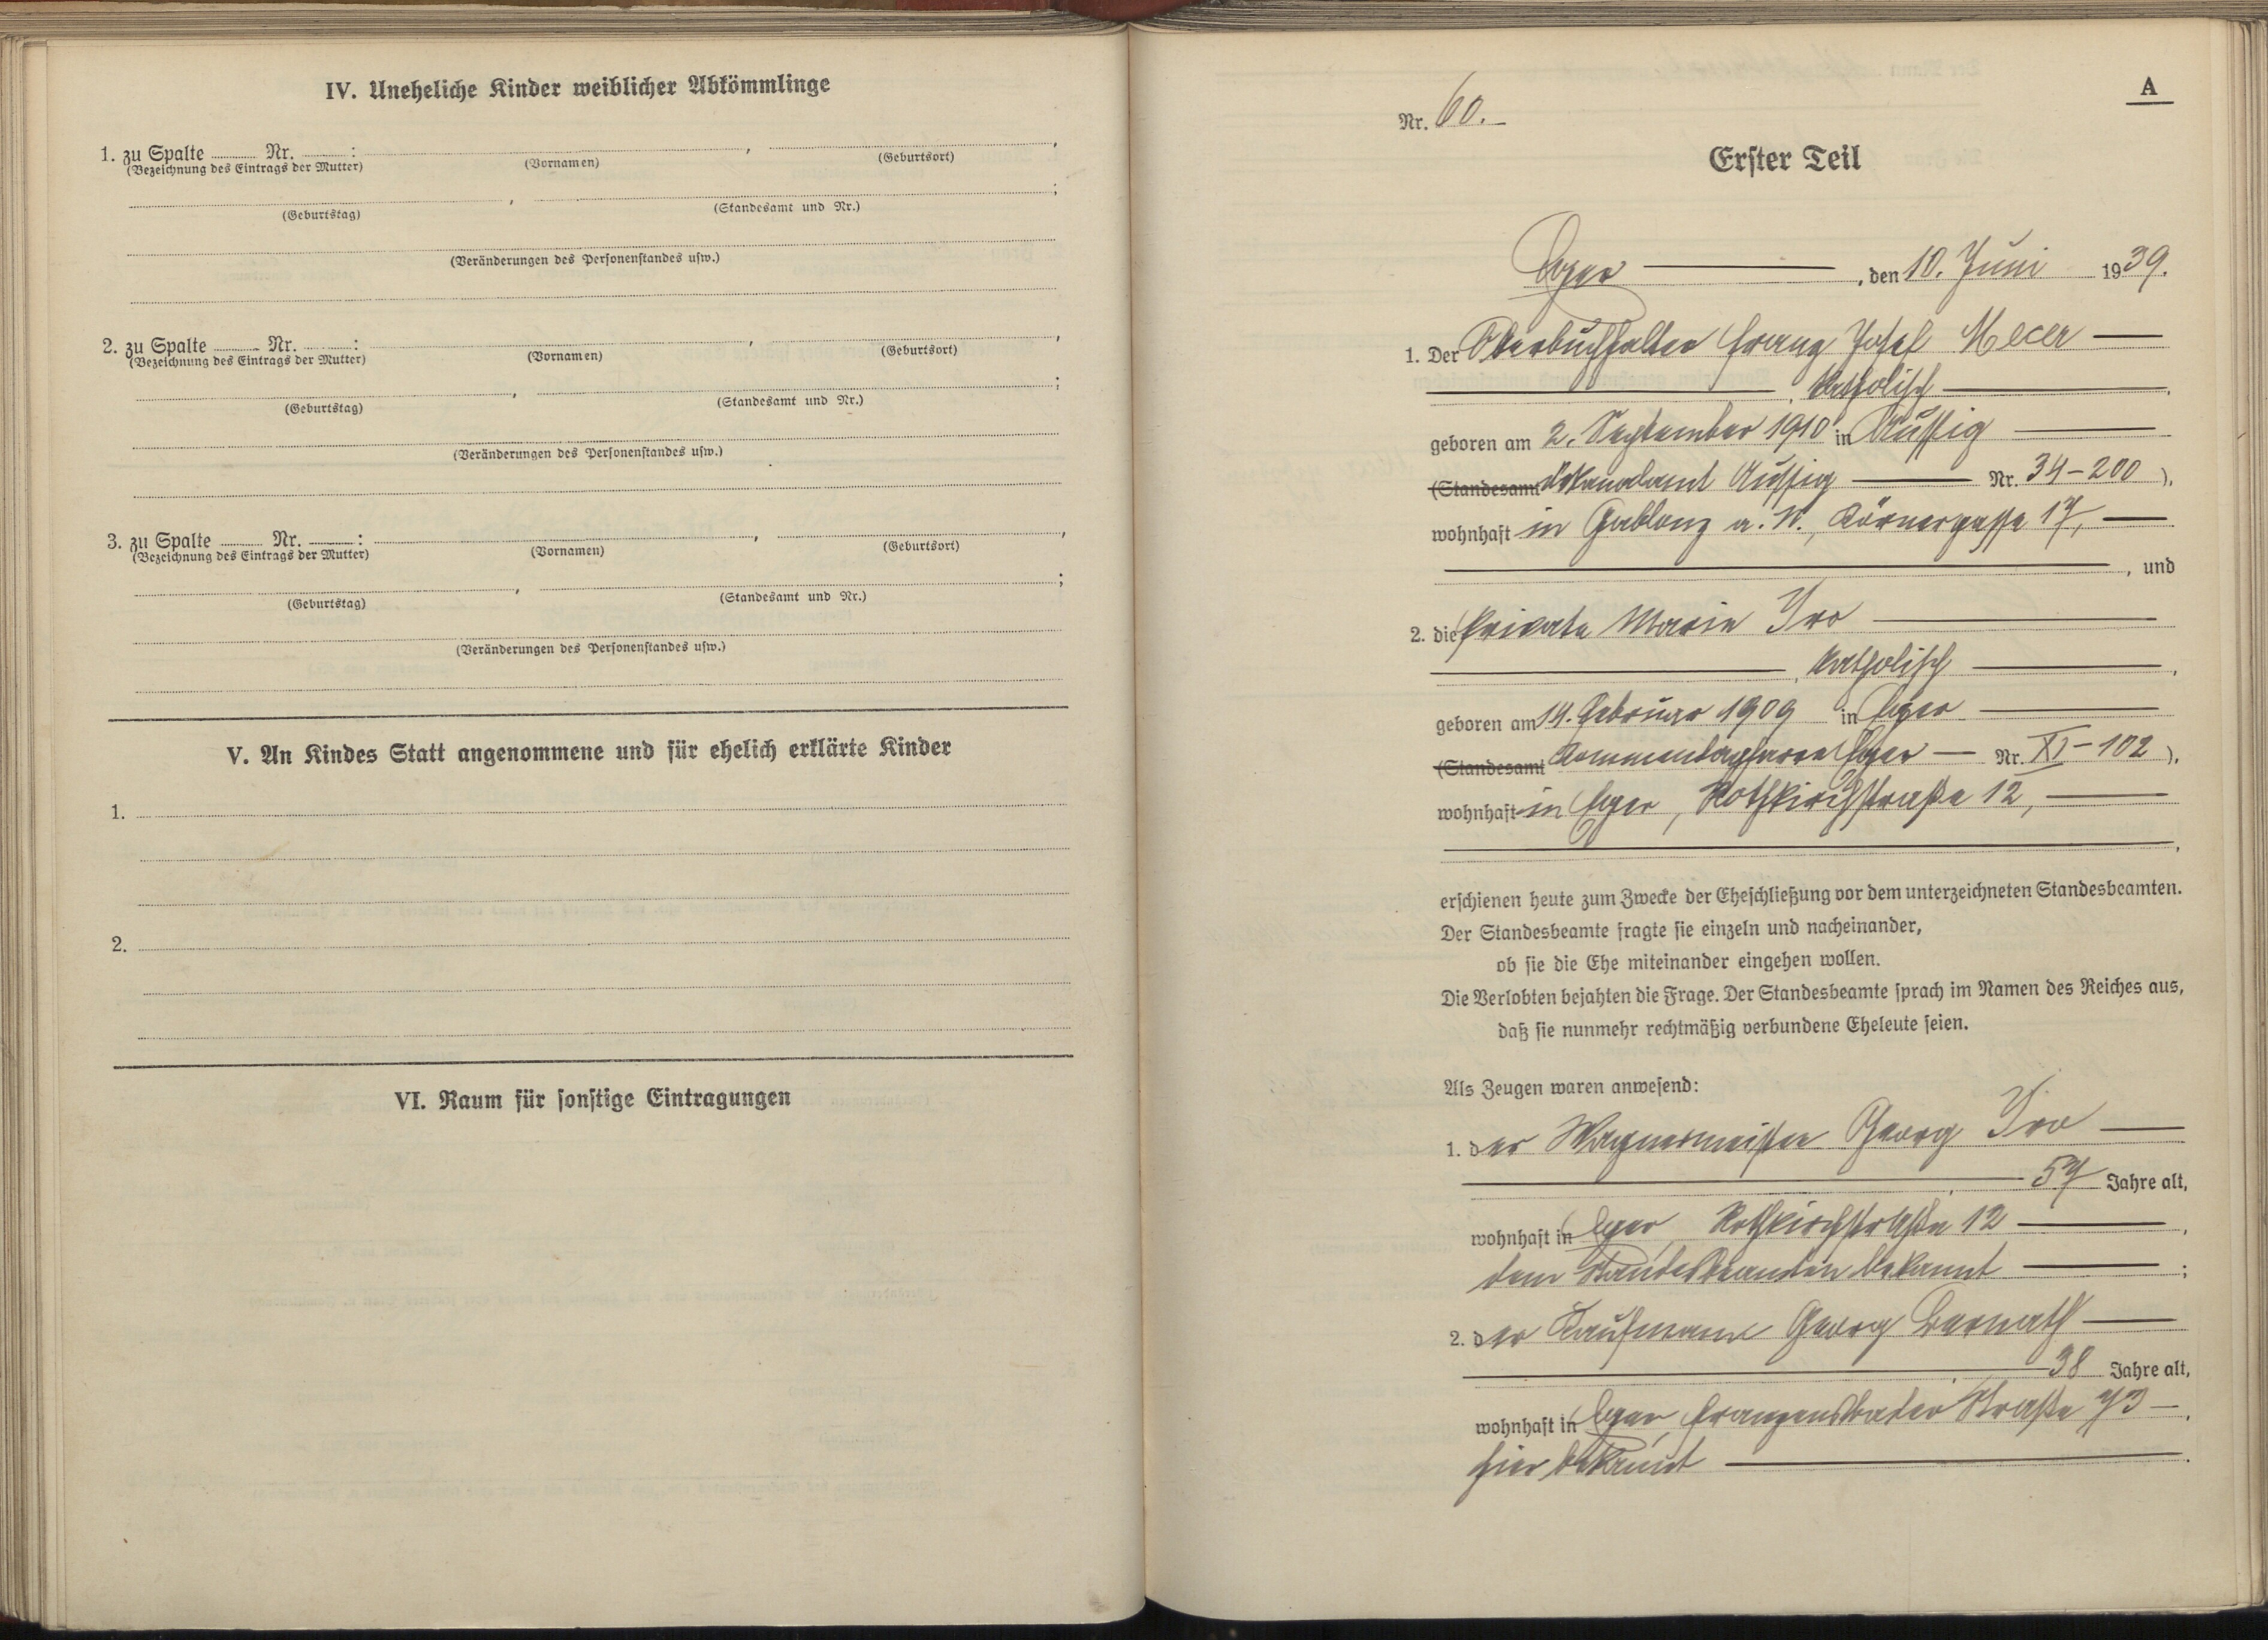 IV. Uneheliche Kinder weiblicher Abkömmlinge
1. zu Spalte ........ Nr. ........ :
(Bezeichnung des Eintrags der Mutter) (Vornamen) (Geburtsort)
(Geburtstag) (Standesamt und Nr.)
(Veränderungen des Personenstandes usw.)
2. zu Spalte ........ Nr. ........ :
(Bezeichnung des Eintrags der Mutter) (Vornamen) (Geburtsort)
(Geburtstag) (Standesamt und Nr.)
(Veränderungen des Personenstandes usw.)
3. zu Spalte ........ Nr. ........ :
(Bezeichnung des Eintrags der Mutter) (Vornamen) (Geburtsort)
(Geburtstag) (Standesamt und Nr.)
(Veränderungen des Personenstandes usw.)
V. An Kindes Statt angenommene und für ehelich erklärte Kinder
1.
2.
VI. Raum für sonstige Eintragungen
A
Nr. 60.
Erster Teil
Eger, den 10. Juni 1939.
1. Der Oberbuchhalter Franz Josef Mecer
, katholisch,
geboren am 2. September 1910 in Aussig
(Standesamt Dekanalamt Aussig Nr. 34-200),
wohnhaft in Gablonz a. N., Körnergasse 17,
, und
2. die Private Marie Iro
, katholisch,
geboren am 14. Februar 1909 in Eger
(Standesamt Kommendapfarre Eger Nr. XI-102),
wohnhaft in Eger, Rothkirchstraße 12,
erschienen heute zum Zwecke der Eheschließung vor dem unterzeichneten Standesbeamten.
Der Standesbeamte fragte sie einzeln und nacheinander,
ob sie die Ehe miteinander eingehen wollen.
Die Verlobten bejahten die Frage. Der Standesbeamte sprach im Namen des Reiches aus,
daß sie nunmehr rechtmäßig verbundene Eheleute seien.
Als Zeugen waren anwesend:
1. der Wagnermeister Georg Iro
57 Jahre alt,
wohnhaft in Eger, Rothkirchstraße 12,
dem Standesbeamten bekannt;
2. der Kaufmann Georg Bernath
38 Jahre alt,
wohnhaft in Eger, Franzensbader Straße 73,
hier bekannt.